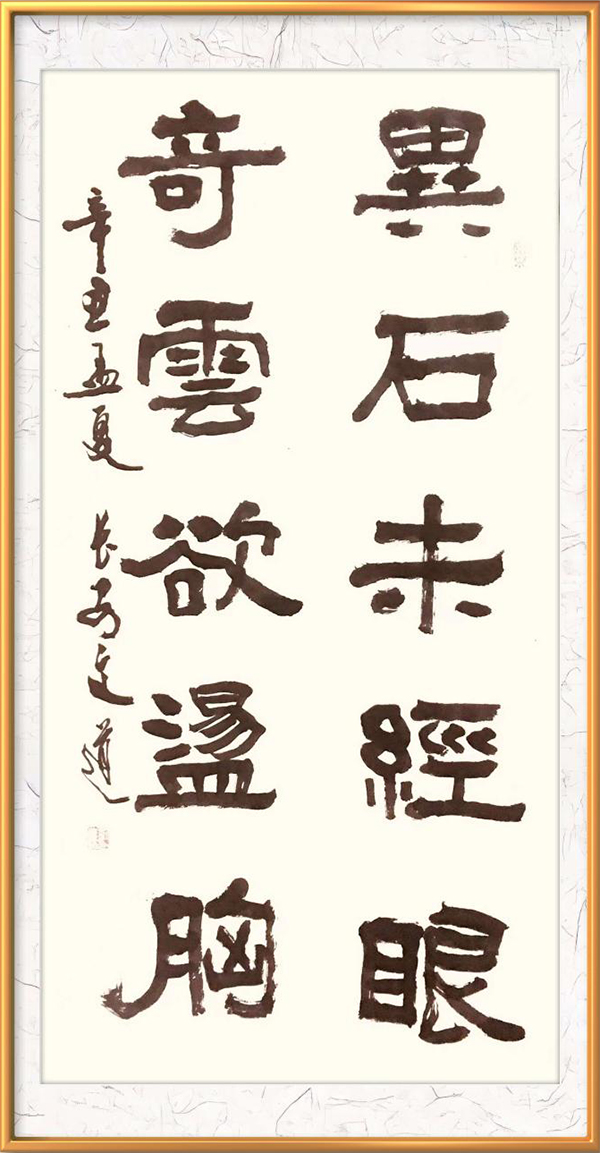 異石未經眼
奇雲欲盪胸
辛丑孟夏 长安 道